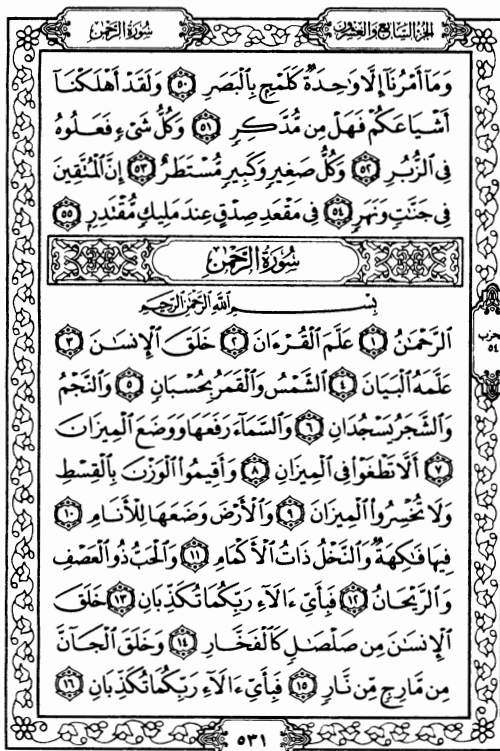 سُورَةُ الرَّحْمٰن
الجزء السابع والعشرون
وَمَآ أَمْرُنَآ إِلَّا وَٰحِدَةٌ كَلَمْحٍۭ بِٱلْبَصَرِ ٥٠ وَلَقَدْ أَهْلَكْنَآ
أَشْيَاعَكُمْ فَهَلْ مِن مُّدَّكِرٍ ٥١ وَكُلُّ شَىْءٍ فَعَلُوهُ
فِى ٱلزُّبُرِ ٥٢ وَكُلُّ صَغِيرٍ وَكَبِيرٍ مُّسْتَطَرٌ ٥٣ إِنَّ ٱلْمُتَّقِينَ
فِى جَنَّٰتٍ وَنَهَرٍ ٥٤ فِى مَقْعَدِ صِدْقٍ عِندَ مَلِيكٍ مُّقْتَدِرٍۭ ٥٥
سُورَةُ الرَّحْمٰن
بِسْمِ ٱللَّهِ ٱلرَّحْمَٰنِ ٱلرَّحِيمِ
ٱلرَّحْمَٰنُ ١ عَلَّمَ ٱلْقُرْءَانَ ٢ خَلَقَ ٱلْإِنسَٰنَ ٣
عَلَّمَهُ ٱلْبَيَانَ ٤ ٱلشَّمْسُ وَٱلْقَمَرُ بِحُسْبَانٍ ٥ وَٱلنَّجْمُ
وَٱلشَّجَرُ يَسْجُدَانِ ٦ وَٱلسَّمَآءَ رَفَعَهَا وَوَضَعَ ٱلْمِيزَانَ
٧ أَلَّا تَطْغَوْا۟ فِى ٱلْمِيزَانِ ٨ وَأَقِيمُوا۟ ٱلْوَزْنَ بِٱلْقِسْطِ
وَلَا تُخْسِرُوا۟ ٱلْمِيزَانَ ٩ وَٱلْأَرْضَ وَضَعَهَا لِلْأَنَامِ ١٠
فِيهَا فَٰكِهَةٌ وَٱلنَّخْلُ ذَاتُ ٱلْأَكْمَامِ ١١ وَٱلْحَبُّ ذُو ٱلْعَصْفِ
وَٱلرَّيْحَانُ ١٢ فَبِأَىِّ ءَالَآءِ رَبِّكُمَا تُكَذِّبَانِ ١٣ خَلَقَ
ٱلْإِنسَٰنَ مِن صَلْصَٰلٍ كَٱلْفَخَّارِ ١٤ وَخَلَقَ ٱلْجَآنَّ
مِن مَّارِجٍ مِّن نَّارٍ ١٥ فَبِأَىِّ ءَالَآءِ رَبِّكُمَا تُكَذِّبَانِ ١٦
حزب
٥٤
٥٣١